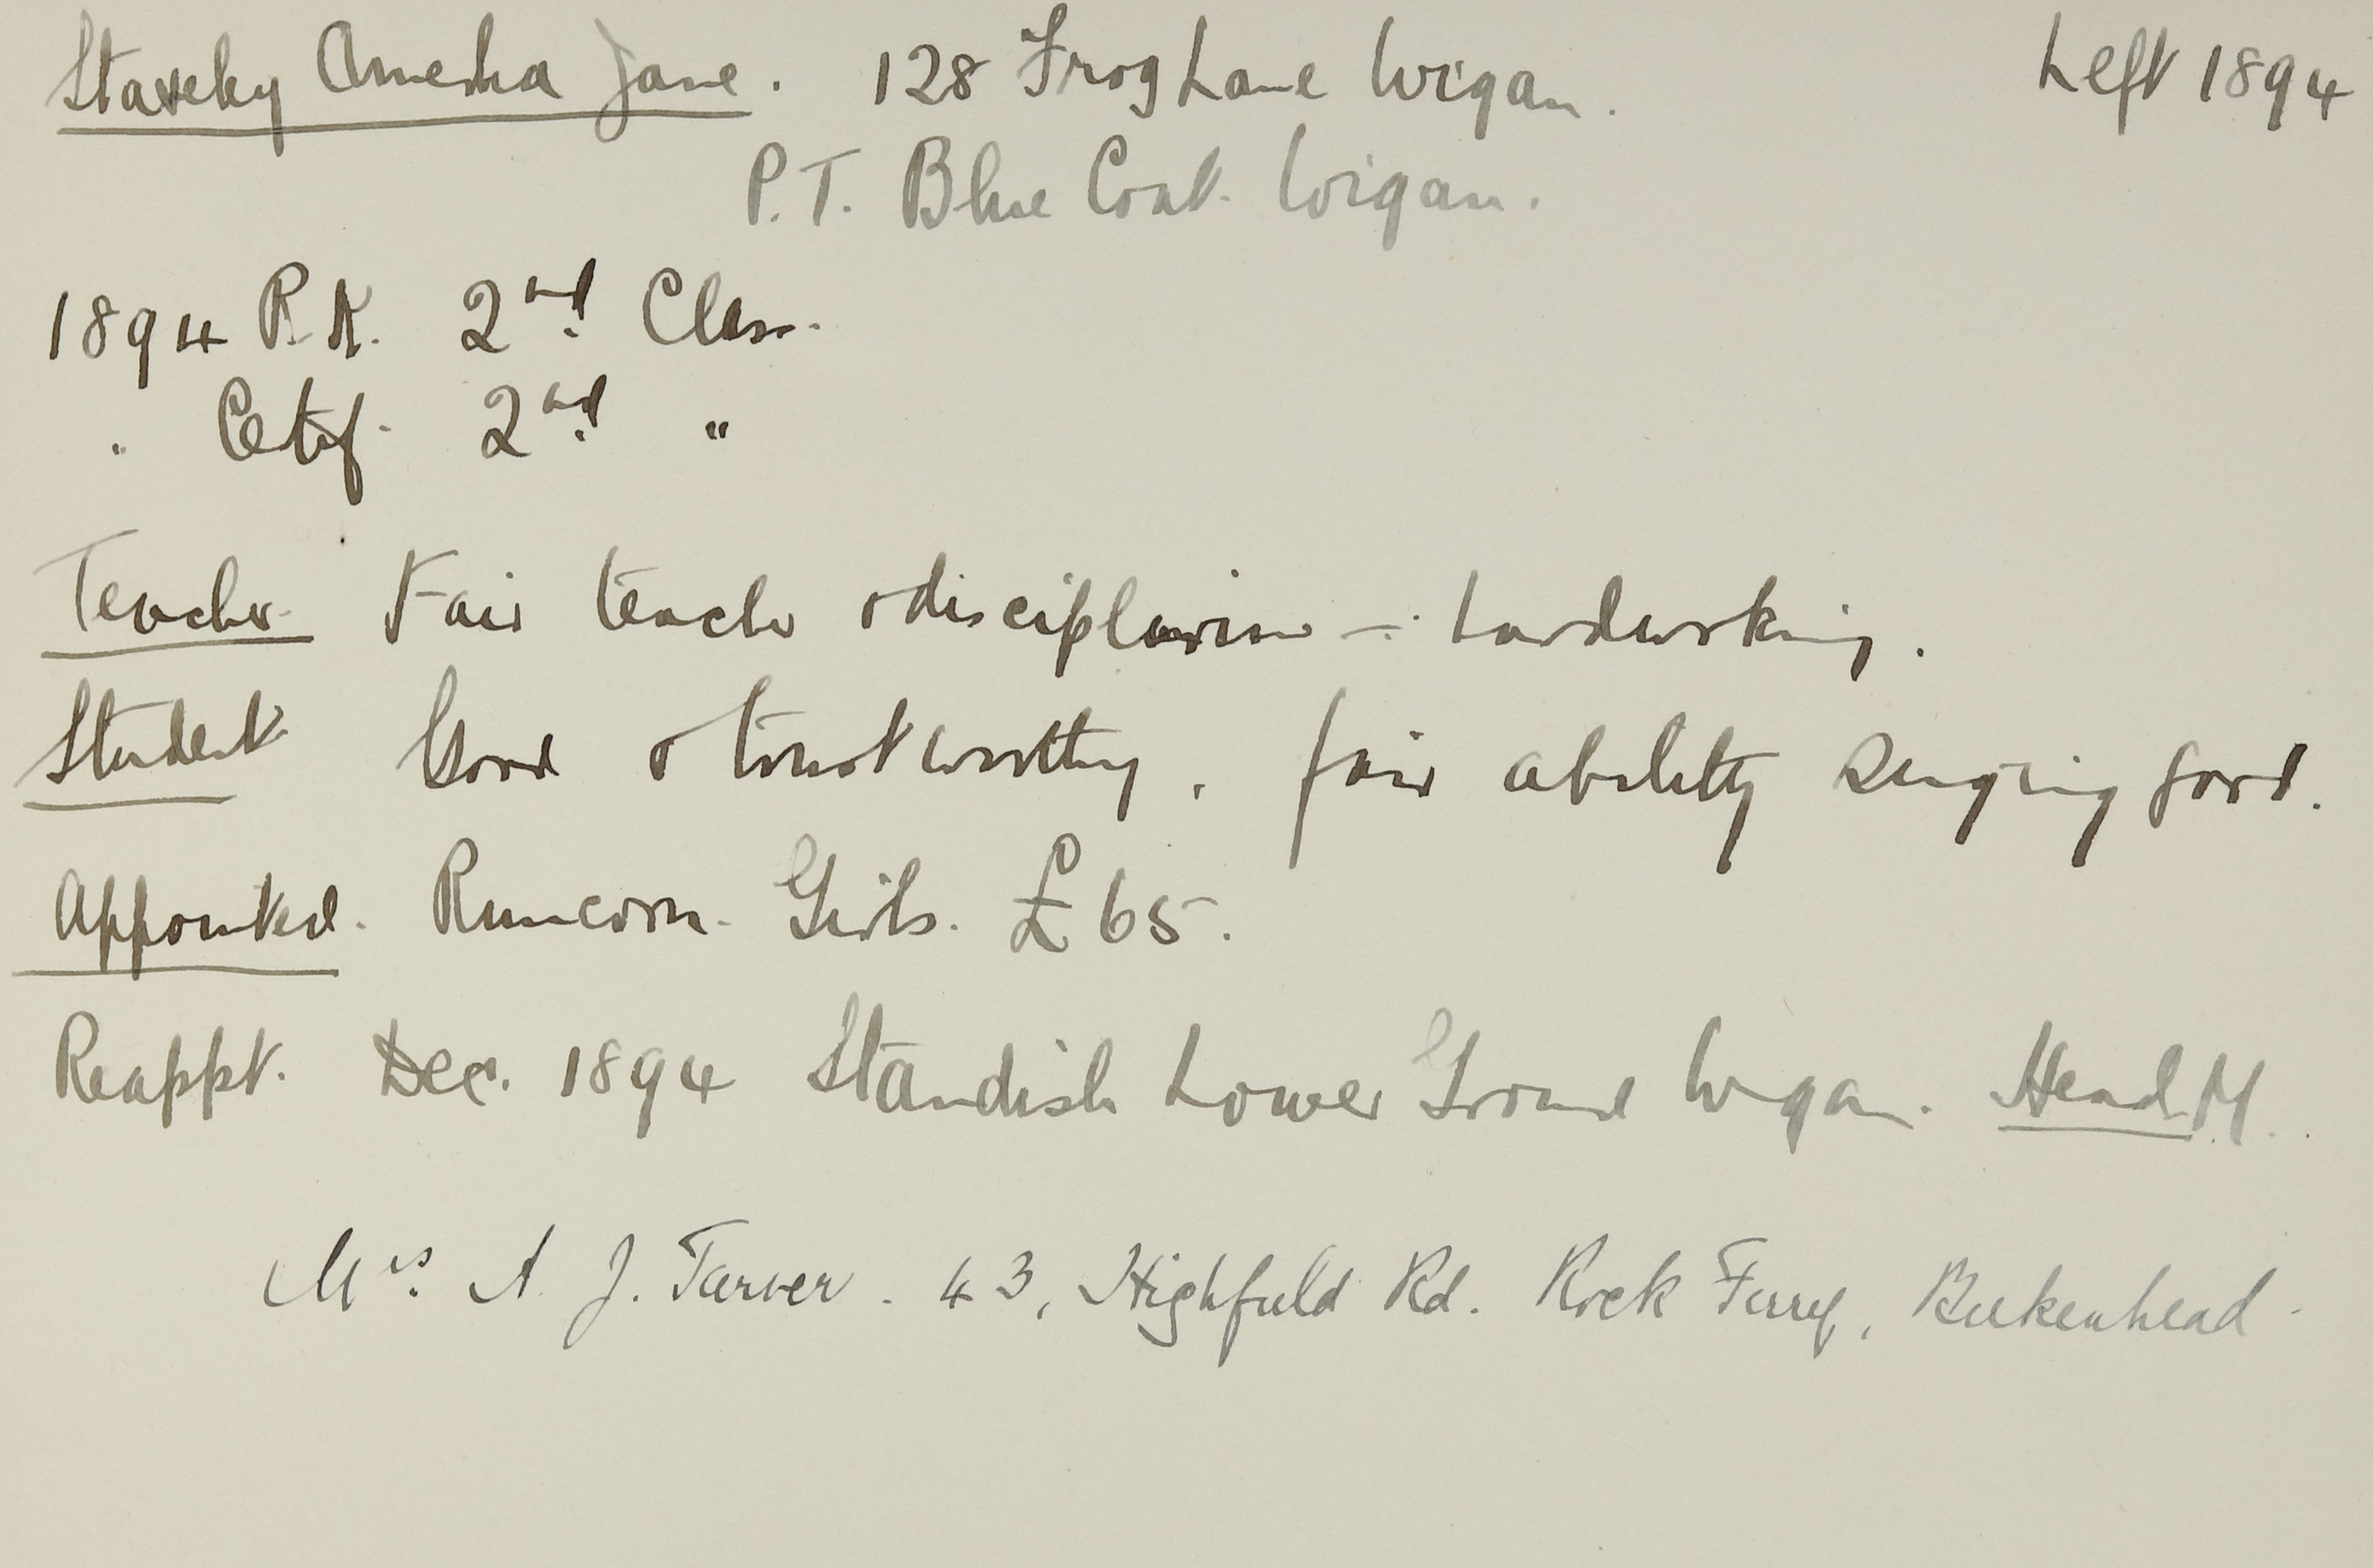 Staveley Amelia Jane. 128 Frog Lane Wigan. Left 1894
P.T. Blue Coat. Wigan.
1894 R.K. 2nd Class.
" Certif. 2nd "
Teacher Fair teacher & disciplinarian - hardworking.
Student Good & trustworthy, fair ability Singing good.
Appointed. Runcorn. Girls. £65.
Reappt. Dec. 1894 Standish Lower Ground Wigan. Head M.
Mrs. A. J. Tarver. 43, Highfield Rd. Rock Ferry, Birkenhead.